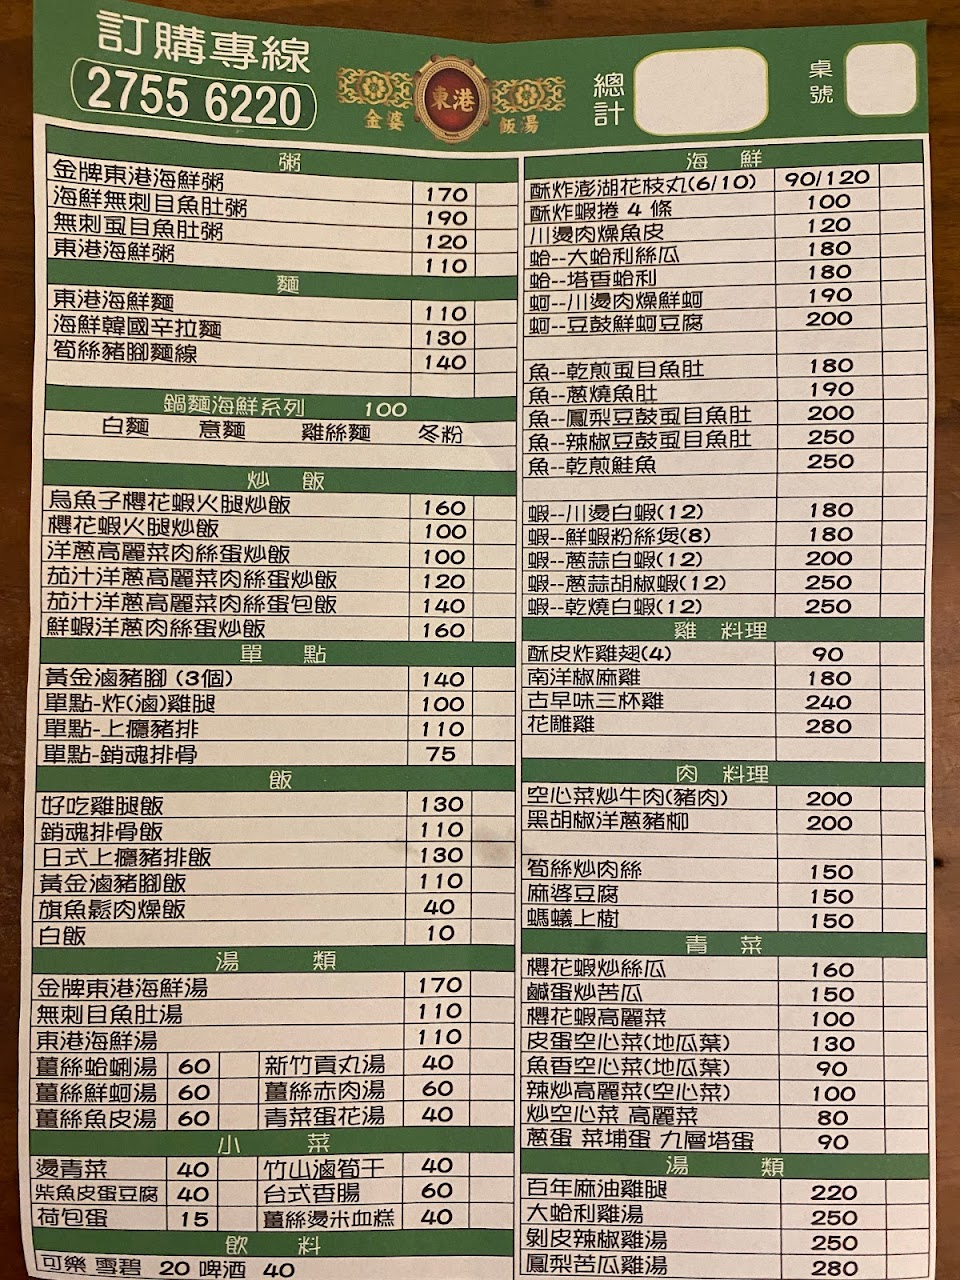 訂購專線
2755 6220
東港
金婆 飯湯
總計
桌號
粥
金牌東港海鮮粥 170
海鮮無刺目魚肚粥 190
無刺虱目魚肚粥 120
東港海鮮粥 110
麵
東港海鮮麵 110
海鮮韓國辛拉麵 130
筍絲豬腳麵線 140
鍋麵海鮮系列 100
白麵 意麵 雞絲麵 冬粉
炒飯
烏魚子櫻花蝦火腿炒飯 160
櫻花蝦火腿炒飯 100
洋蔥高麗菜肉絲蛋炒飯 100
茄汁洋蔥高麗菜肉絲蛋炒飯 120
茄汁洋蔥高麗菜肉絲蛋包飯 140
鮮蝦洋蔥肉絲蛋炒飯 160
單點
黃金滷豬腳 (3個) 140
單點-炸(滷)雞腿 100
單點-上癮豬排 110
單點-銷魂排骨 75
飯
好吃雞腿飯 130
銷魂排骨飯 110
日式上癮豬排飯 130
黃金滷豬腳飯 110
旗魚鬆肉燥飯 40
白飯 10
湯類
金牌東港海鮮湯 170
無刺目魚肚湯 110
東港海鮮湯 110
薑絲蛤蜊湯 60 新竹貢丸湯 40
薑絲鮮蚵湯 60 薑絲赤肉湯 60
薑絲魚皮湯 60 青菜蛋花湯 40
小菜
燙青菜 40 竹山滷筍干 40
柴魚皮蛋豆腐 40 台式香腸 60
荷包蛋 15 薑絲燙米血糕 40
飲料
可樂 雪碧 20 啤酒 40
海鮮
酥炸澎湖花枝丸(6/10) 90/120
酥炸蝦捲 4 條 100
川燙肉燥魚皮 120
蛤--大蛤利絲瓜 180
蛤--塔香蛤利 180
蚵--川燙肉燥鮮蚵 190
蚵--豆鼓鮮蚵豆腐 200
魚--乾煎虱目魚肚 180
魚--蔥燒魚肚 190
魚--鳳梨豆鼓虱目魚肚 200
魚--辣椒豆鼓虱目魚肚 250
魚--乾煎鮭魚 250
蝦--川燙白蝦(12) 180
蝦--鮮蝦粉絲煲(8) 180
蝦--蔥蒜白蝦(12) 200
蝦--蔥蒜胡椒蝦(12) 250
蝦--乾燒白蝦(12) 250
雞 料理
酥皮炸雞翅(4) 90
南洋椒麻雞 180
古早味三杯雞 240
花雕雞 280
肉 料理
空心菜炒牛肉(豬肉) 200
黑胡椒洋蔥豬柳 200
筍絲炒肉絲 150
麻婆豆腐 150
螞蟻上樹 150
青菜
櫻花蝦炒絲瓜 160
鹹蛋炒苦瓜 150
櫻花蝦高麗菜 100
皮蛋空心菜(地瓜葉) 130
魚香空心菜(地瓜葉) 90
辣炒高麗菜(空心菜) 100
炒空心菜 高麗菜 80
蔥蛋 菜埔蛋 九層塔蛋 90
湯類
百年麻油雞腿 220
大蛤利雞湯 250
剝皮辣椒雞湯 250
鳳梨苦瓜雞湯 280